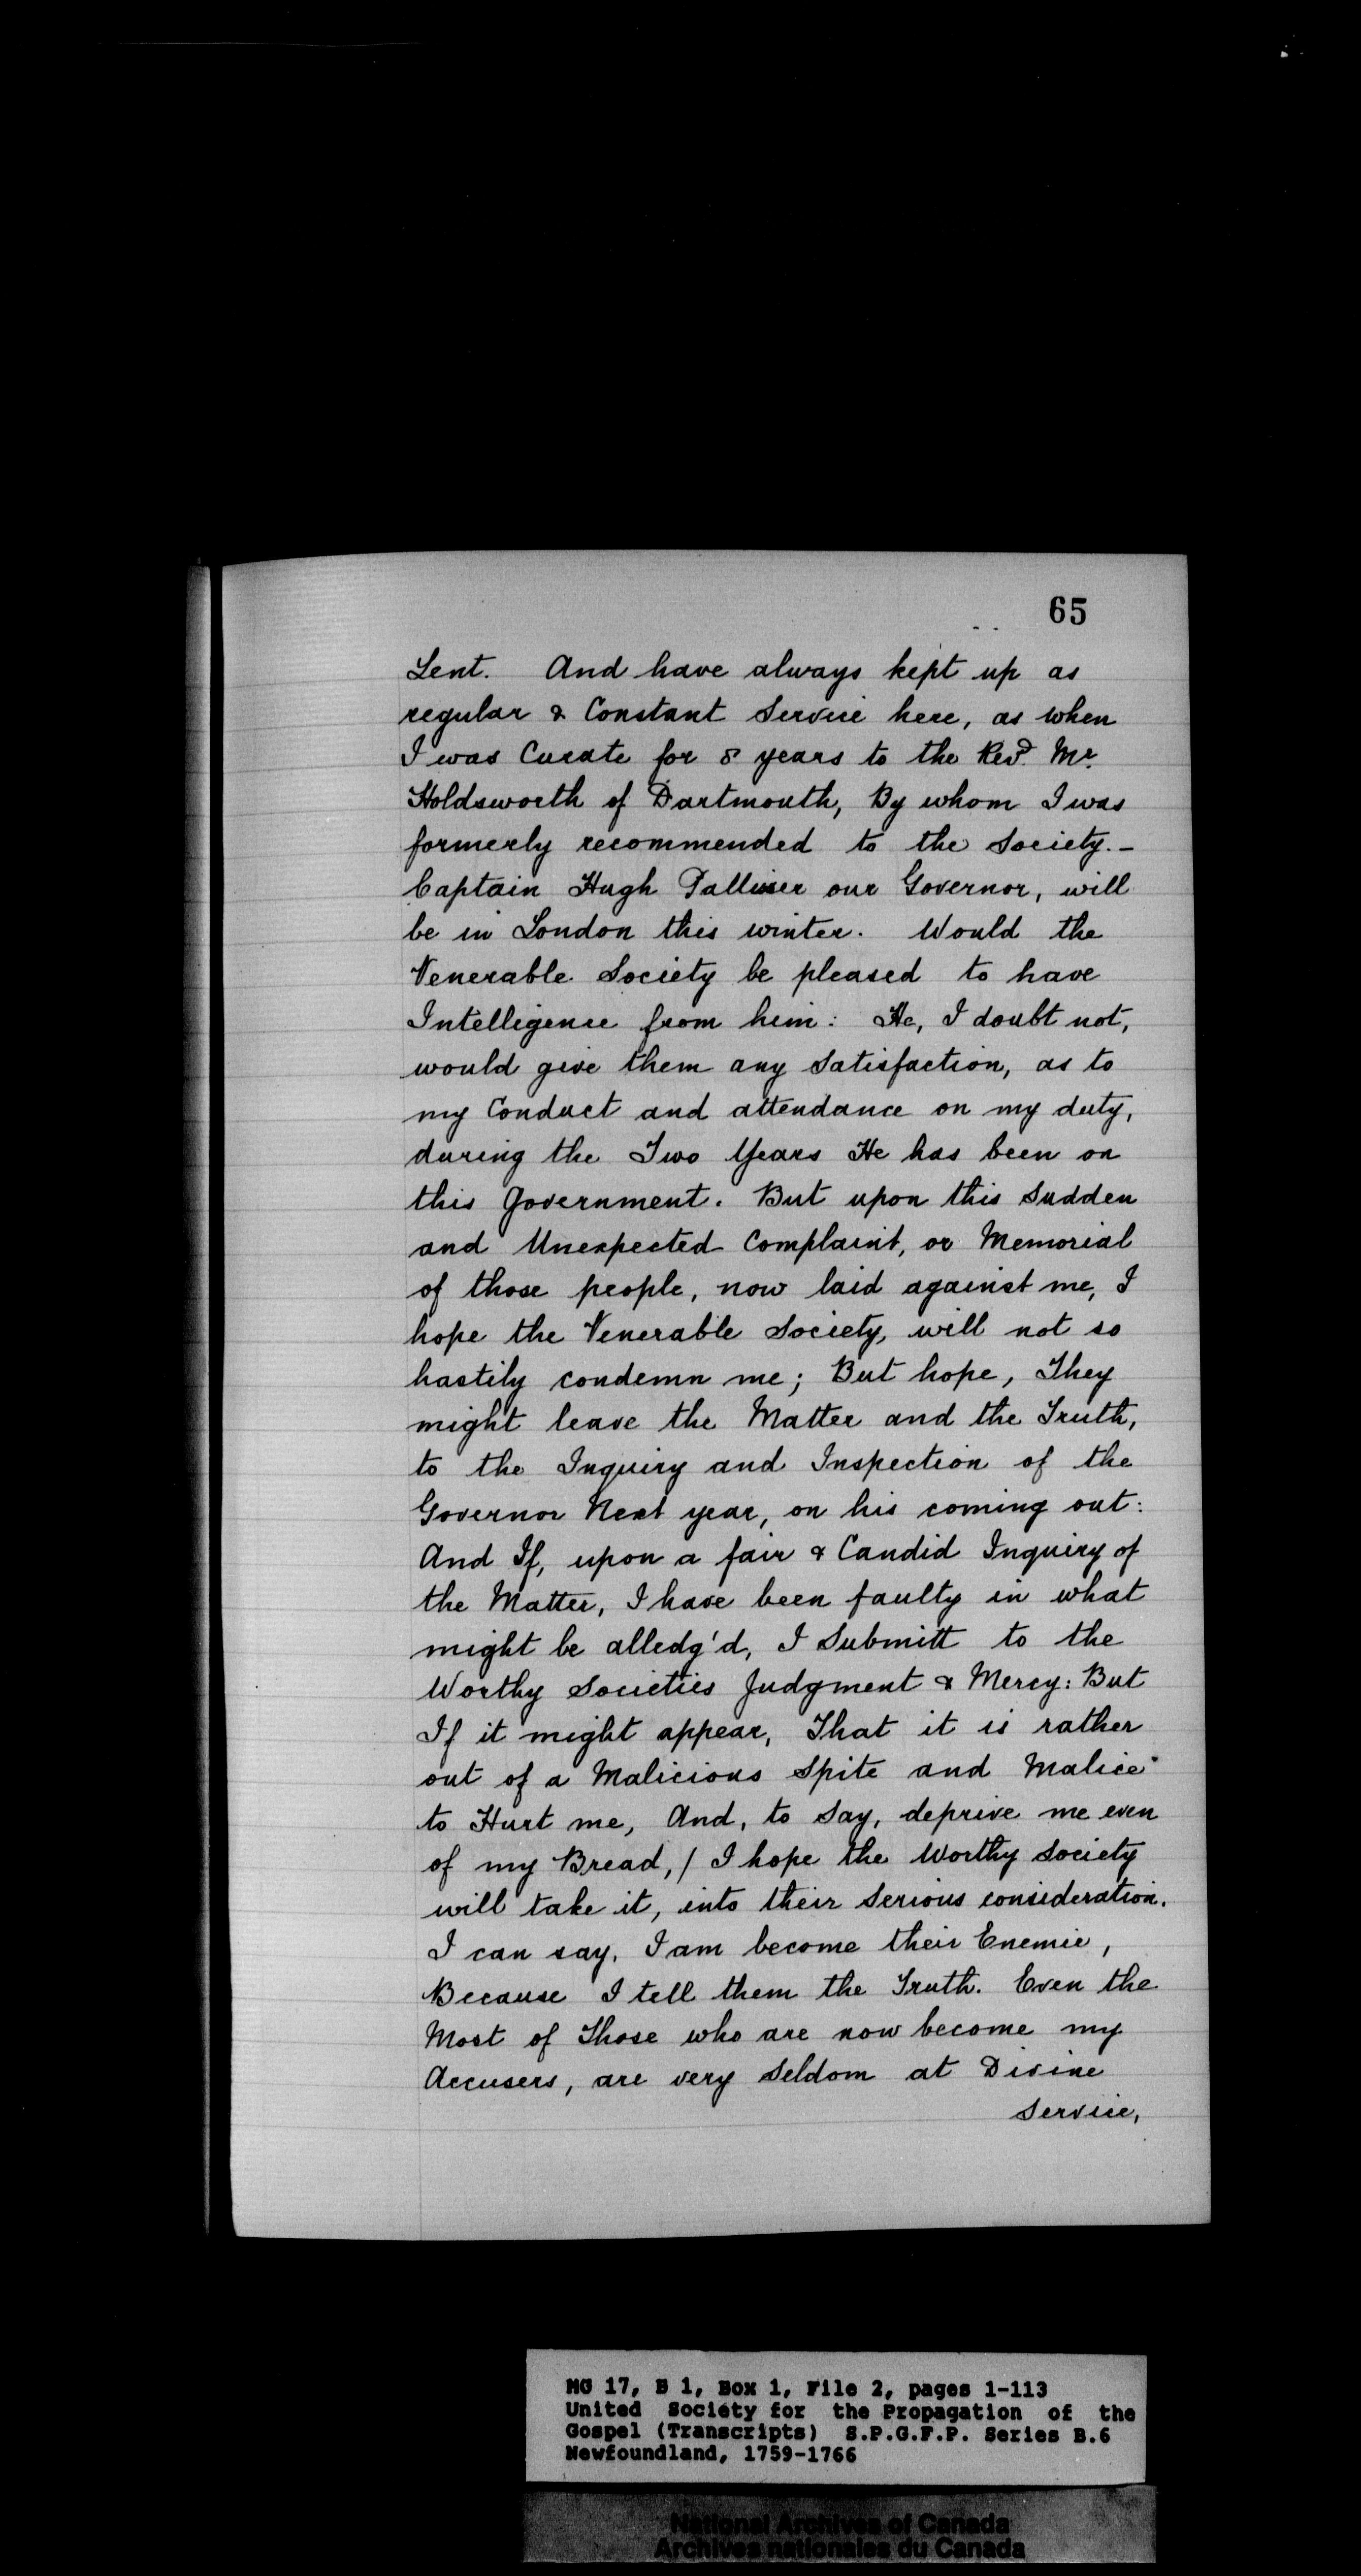 65
Lent. And have always kept up as
regular & Constant Service here, as when
I was Curate for 8 years to the Revd. Mr.
Holdsworth of Dartmouth, By whom I was
formerly recommended to the Society.-
Captain Hugh Palliser our Governor, will
be in London this winter. Would the
Venerable Society be pleased to have
Intelligence from him: He, I doubt not,
would give them any Satisfaction, as to
my Conduct and attendance on my duty,
during the Two Years He has been on
this Government. But upon this Sudden
and Unexpected Complaint, or Memorial
of those people, now laid against me, I
hope the Venerable Society, will not so
hastily condemn me; But hope, They
might leave the Matter and the Truth,
to the Inquiry and Inspection of the
Governor Next year, on his coming out:
And If, upon a fair & Candid Inquiry of
the Matter, I have been faulty in what
might be alledg'd, I Submitt to the
Worthy Societies Judgment & Mercy: But
If it might appear, That it is rather
out of a Malicious Spite and Malice
to Hurt me, And, to Say, deprive me even
of my Bread,/ I hope the Worthy Society
will take it, into their Serious consideration.
I can say, I am become their Enemie,
Because I tell them the Truth. Even the
Most of Those who are now become my
Accusers, are very Seldom at Divine
Service,
MG 17, B 1, Box 1, File 2, pages 1-113
United Society for the Propagation of the
Gospel (Transcripts) S.P.G.F.P. Series B.6
Newfoundland, 1759-1766
National Archives of Canada
Archives nationales du Canada